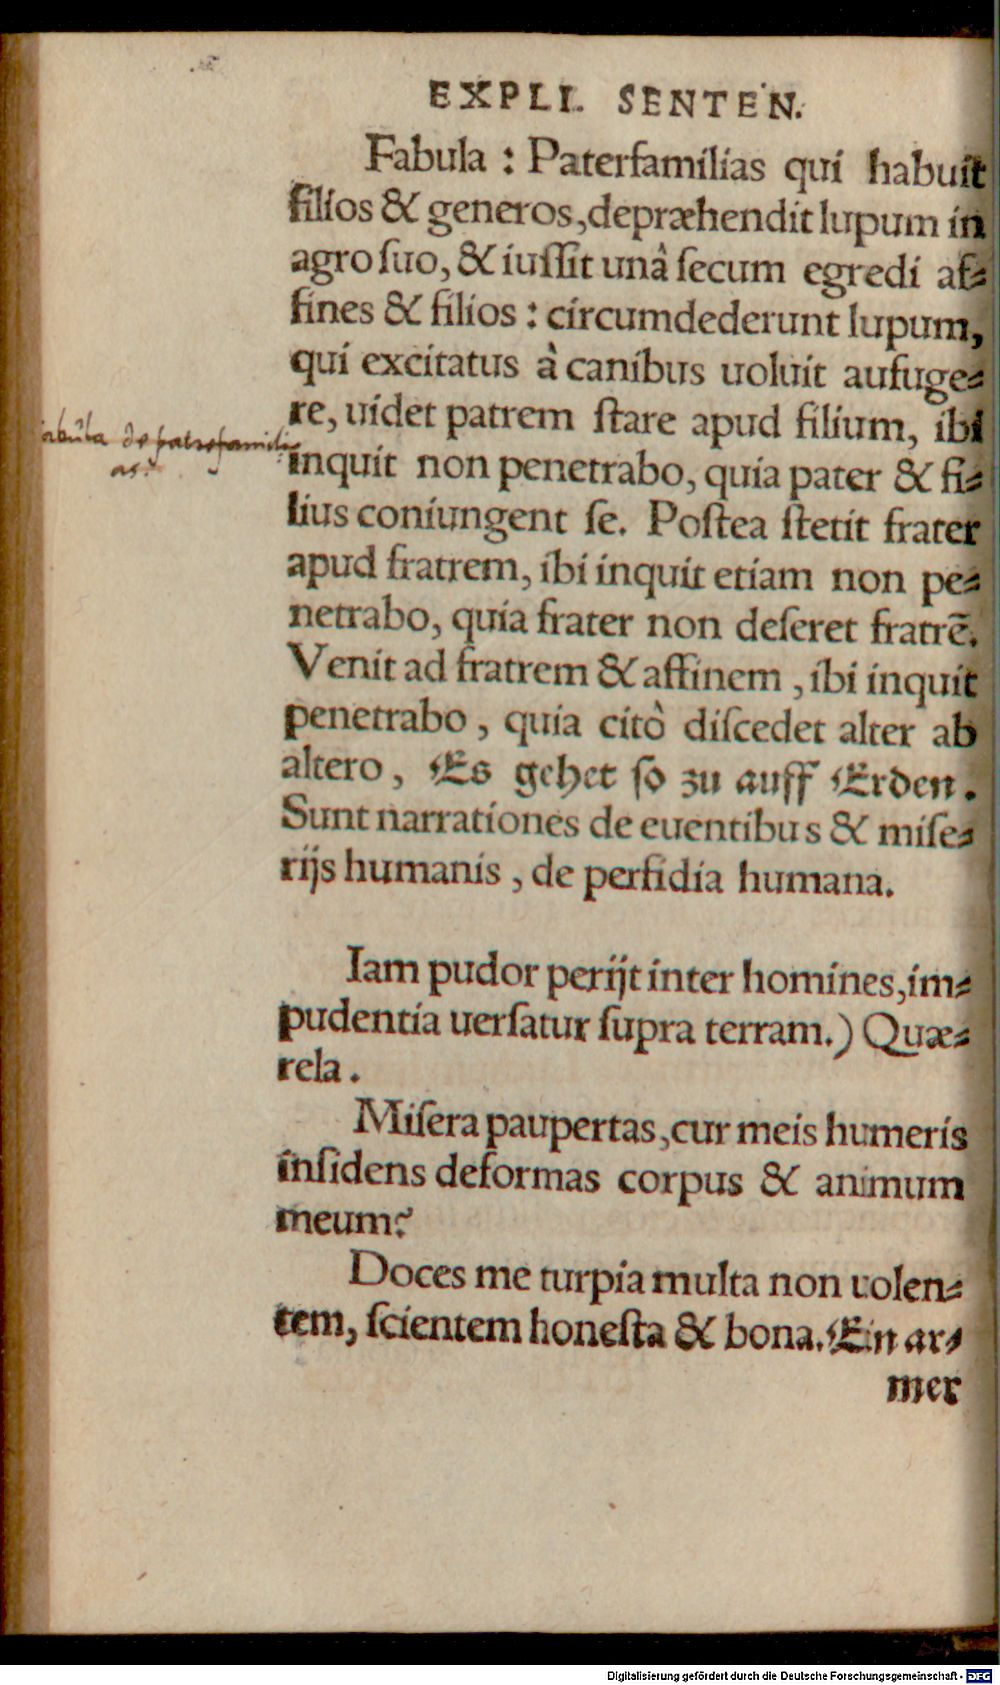 EXPLI. SENTEN.
Fabula : Paterfamilias qui habuit
filios & generos, depræhendit lupum in
agro ſuo, & iuſſit unâ ſecum egredi af⸗
fines & filios : circumdederunt lupum,
qui excitatus à canibus uoluit aufuge⸗
re, uidet patrem ſtare apud filium, ibi
inquit non penetrabo, quia pater & fi⸗
lius coniungent ſe. Poſtea ſtetit frater
apud fratrem, ibi inquit etiam non pe⸗
netrabo, quia frater non deſeret fratrē.
Venit ad fratrem & affinem , ibi inquit
penetrabo , quia citò diſcedet alter ab
altero, Es gehet ſo zu auff Erden.
Sunt narrationes de euentibus & miſe⸗
rijs humanis , de perfidia humana.
fabula de patrefamili
as.
Iam pudor perijt inter homines, im⸗
pudentia uerſatur ſupra terram.) Quæ⸗
rela.
Miſera paupertas, cur meis humeris
inſidens deformas corpus & animum
meum?
Doces me turpia multa non uolen⸗
tem, ſcientem honeſta & bona. Ein ar⸗
mer
Digitalisierung gefördert durch die Deutsche Forschungsgemeinschaft - DFG